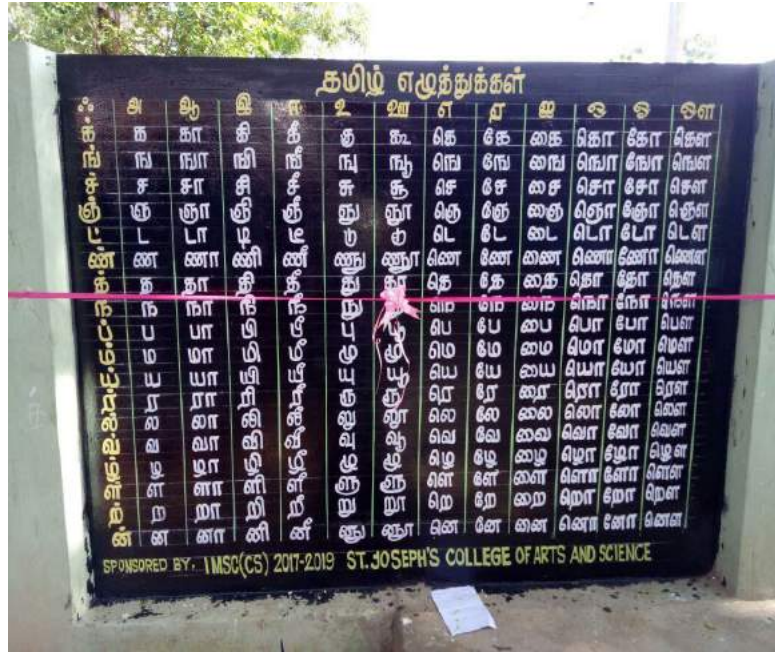 தமிழ் எழுத்துக்கள்
ஃ அ ஆ இ ஈ உ ஊ எ ஏ ஐ ஒ ஓ ஔ
க் க கா கி கீ கு கூ கெ கே கை கொ கோ கௌ
ங் ங ஙா ஙி ஙீ ஙு ஙூ ஙெ ஙே ஙை ஙொ ஙோ ஙௌ
ச் ச சா சி சீ சு சூ செ சே சை சொ சோ சௌ
ஞ் ஞ ஞா ஞி ஞீ ஞு ஞூ ஞெ ஞே ஞை ஞொ ஞோ ஞௌ
ட் ட டா டி டீ டு டூ டெ டே டை டொ டோ டௌ
ண் ண ணா ணி ணீ ணு ணூ ணெ ணே ணை ணொ ணோ ணௌ
த் த தா தி தீ து தெ தே தை தொ தோ தௌ
ந் ந நா நி நீ நு நெ நே நை நொ நோ நௌ
ப் ப பா பி பீ பு பெ பே பை பொ போ பௌ
ம் ம மா மி மீ மு மூ மெ மே மை மொ மோ மௌ
ய் ய யா யி யீ யு யூ யெ யே யை யொ யோ யௌ
ர் ர ரா ரி ரீ ரு ரூ ரெ ரே ரை ரொ ரோ ரௌ
ல் ல லா லி லீ லு லூ லெ லே லை லொ லோ லௌ
வ் வ வா வி வீ வு வூ வெ வே வை வொ வோ வௌ
ழ் ழ ழா ழி ழீ ழு ழூ ழெ ழே ழை ழொ ழோ ழௌ
ள் ள ளா ளி ளீ ளு ளூ ளெ ளே ளை ளொ ளோ ளௌ
ற் ற றா றி றீ று றூ றெ றே றை றொ றோ றௌ
ன் ன னா னி னீ னு னூ னெ னே னை னொ னோ னௌ
SPONSORED BY: IMSC(CS) 2017-2019 ST.JOSEPH'S COLLEGE OF ARTS AND SCIENCE